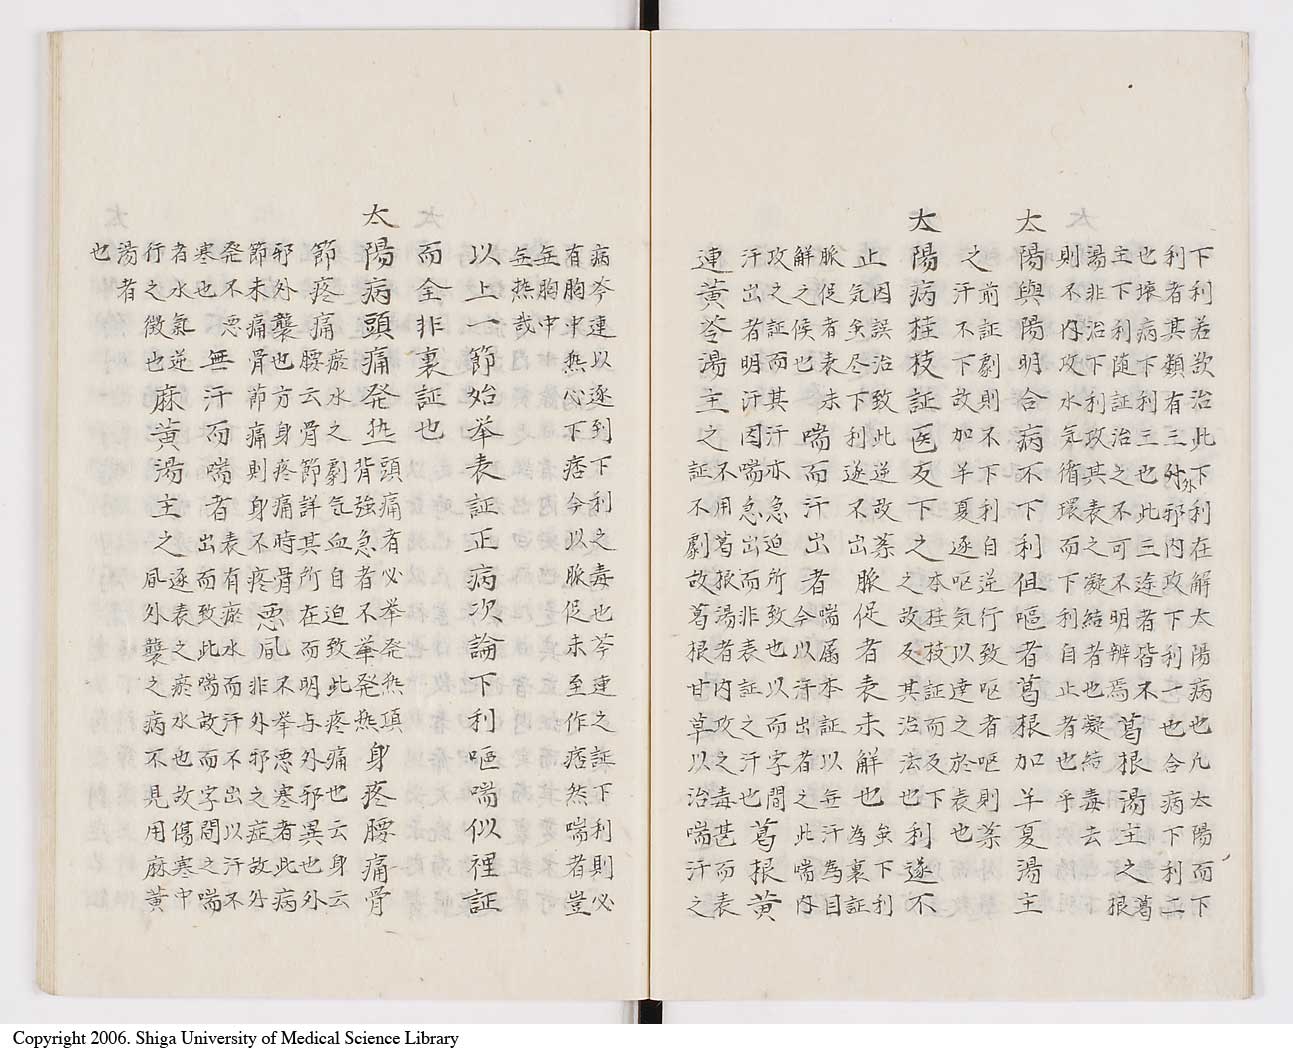 下利若欬治此下利在解太陽病也凡太陽而下
利者其類有三外邪内攻下利一也合病下利二
也壊病下利三也此三途者皆不
主下利随証治之不可不明辨焉
葛根湯主之
葛根
湯非治下利攻其表之凝結者也凝結毒去
則不内攻水気循環而下利自止者也乎
太陽與陽明合病不下利但嘔者葛根加半夏湯主
之
前証劇則不下利自逆行致嘔者嘔則柰
汗不下故加半夏逐嘔気以達之於表也
太陽病桂枝証医反下之
本桂枝証而反下
之故及其治法也
利遂不
止
因誤治致此逆故柰
気虽尽下利遂不出
脈促者表未解也
虽下利
為裏証
脈促者表未
解之候也
喘而汗出者
喘属本証以無汗為目
今以汗出者之此喘内
攻之証而其汗亦急迫所致也以而字間
汗出者明汗因喘急出而非表証之汗也
葛根黄
連黄芩湯主之
不用葛根湯者内攻之毒甚而表
証不劇故葛根甘草以治喘汗之
病芩連以逐到下利之毒也芩連之証下利則必
有胸中熱心下痞今以脈促未至作痞然喘者豈
無胸中
無熱哉
以上一節始挙表証正病次論下利嘔喘似裡証
而全非裏証也
太陽病頭痛発熱
頭痛者必挙発熱項
背強急者不挙発熱
身疼腰痛骨
節疼痛
瘀水之劇気血自迫致此疼痛也云身云
腰云骨節詳其所在而明与外邪異也外
邪外襲也方身疼痛時骨
節未痛骨節痛則身不疼
悪風
不挙悪寒者此病
非外邪之症故外
発不悪
寒也
無汗而喘者
表有瘀水而汗不出以汗不
出而致此喘故而字間之喘
者水氣逆
行之徴也
麻黄湯主之
逐表之瘀水也故傷寒中
風外襲之病不見用麻黄
湯者
也
Copyright 2006. Shiga University of Medical Science Library